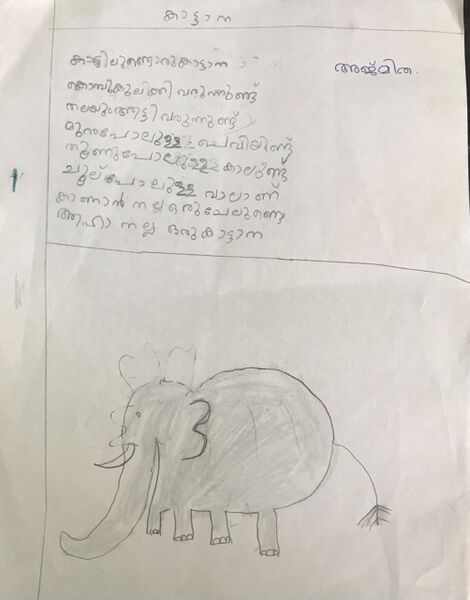 കാട്ടാന
അജ്മിത.
കാട്ടിലുണ്ടൊരുകാട്ടാന
കൊമ്പുകുലുക്കി വരുന്നുണ്ട്
തലയുംആട്ടി വരുന്നുണ്ട്
മുറംപോലുള്ള ചെവിയുണ്ട്
തൂണുപോലുള്ള കാലുണ്ട്
ചൂല്പോലുള്ള വാലാണ്
കാണാൻ നല്ലഒരുചേലുണ്ടെ
ആഹാ നല്ല ഒരുകാട്ടാന